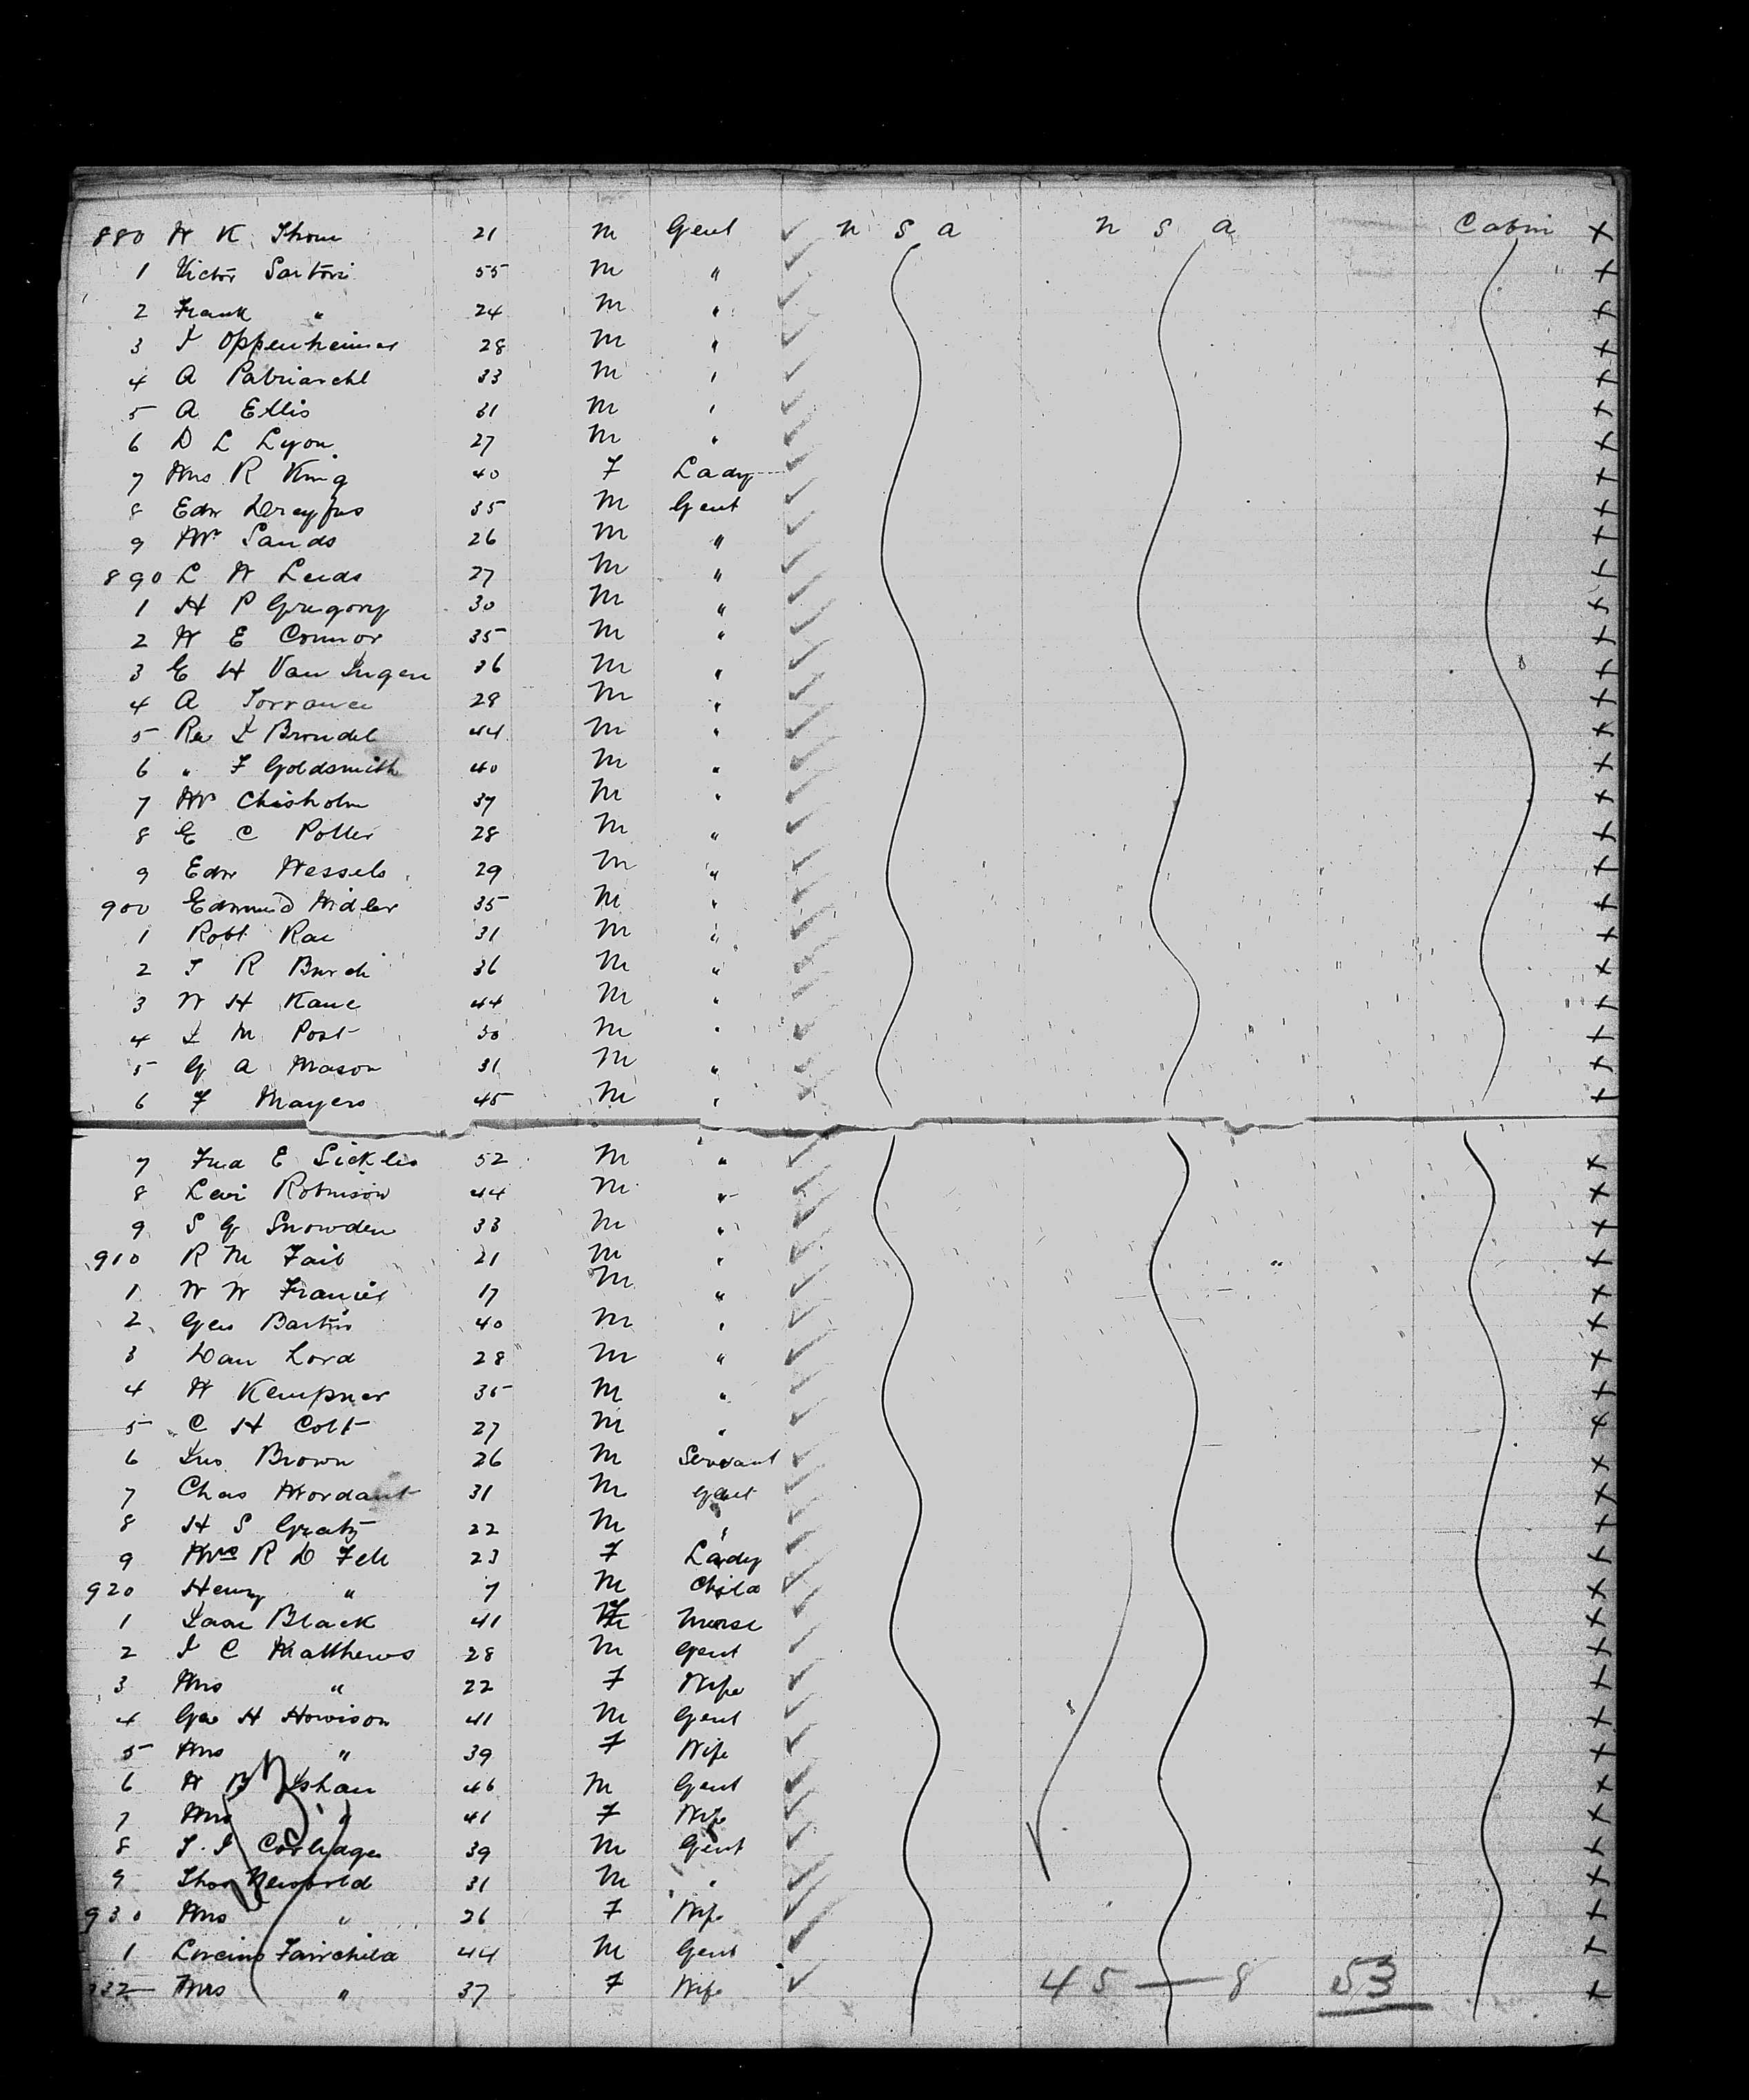 880 W K Thom 21 M Gent ✓ U S A U S A Cabin X
1 Victor Sartori 55 M " ✓ X
2 Frank " 24 M " ✓ X
3 I Oppenheimer 28 M " ✓ X
4 A Patriarchl 33 M " ✓ X
5 A Ellis 31 M " ✓ X
6 D L Lyon 27 M " ✓ X
7 Mrs R King 40 F Lady ✓ X
8 Edw Dreyfus 35 M Gent ✓ X
9 Mr Sands 26 M " ✓ X
890 L W Leeds 27 M " ✓ X
1 H P Gregory 30 M " ✓ X
2 W E Connor 35 M " ✓ X
3 E H Van Ingen 36 M " ✓ X
4 A Torrance 28 M " ✓ X
5 Rev I Brondel 44 M " ✓ X
6 " F Goldsmith 40 M " ✓ X
7 Mr Chisholm 37 M " ✓ X
8 E C Potter 28 M " ✓ X
9 Edw Wessels 29 M " ✓ X
900 Edmund Widler 35 M " ✓ X
1 Robt Rae 31 M " ✓ X
2 T R Burch 36 M " ✓ X
3 W H Kane 44 M " ✓ X
4 I M Post 30 M " ✓ X
5 G A Mason 31 M " ✓ X
6 F Mayers 45 M " ✓ X
7 Fred E Sickles 52 M " ✓ X
8 Levi Robinson 44 M " ✓ X
9 S G Snowden 33 M " ✓ X
910 R M Fair 21 M " ✓ X
1 W W Francis 17 M " ✓ X
2 Geo 40 M " ✓ X
3 Dan Lord 28 M " ✓ X
4 W Kempner 35 M " ✓ X
5 C H Colt 27 M " ✓ X
6 Jno Brown 26 M Servant ✓ X
7 Chas Mordaunt 31 M Gent ✓ X
8 H S Gratz 22 M " ✓ X
9 Mrs R D Fell 23 F Lady ✓ X
920 Henry " 7 M Child ✓ X
1 Black 41 F Nurse ✓ X
2 J C Matthews 28 M Gent ✓ X
3 Mrs " 22 F Wife ✓ X
4 Geo H Howison 41 M Gent ✓ X
5 Mrs " 39 F Wife ✓ X
6 W B Isham 46 M Gent ✓ X
7 Mrs " 41 F Wife ✓ X
8 T. J Coolidge 39 M Gent ✓ X
9 Thos Newbold 31 M " ✓ X
930 Mrs " 26 F Wife ✓ X
1 Lucius Fairchild 44 M Gent ✓ X
932 Mrs " 37 F Wife ✓ 45 — 8 53 X